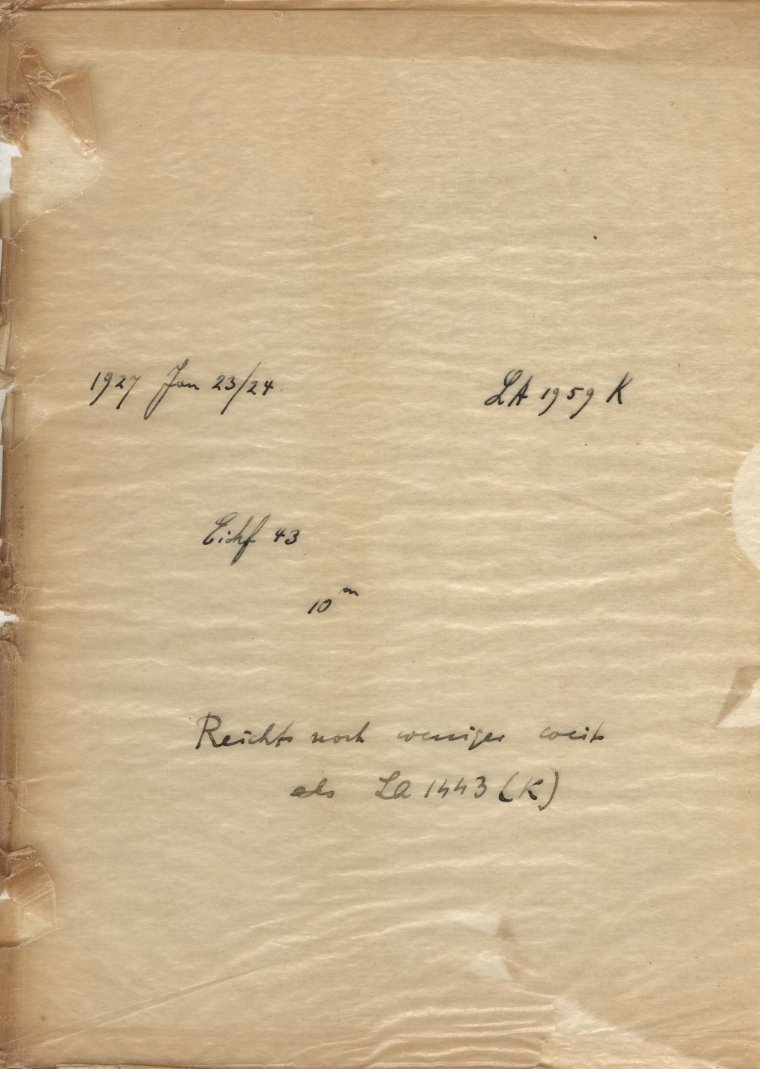 1927 Jan 23/24 LA 1959 K
Eichf 43
10 m
Reicht noch weniger weit
als La 1443 (K)